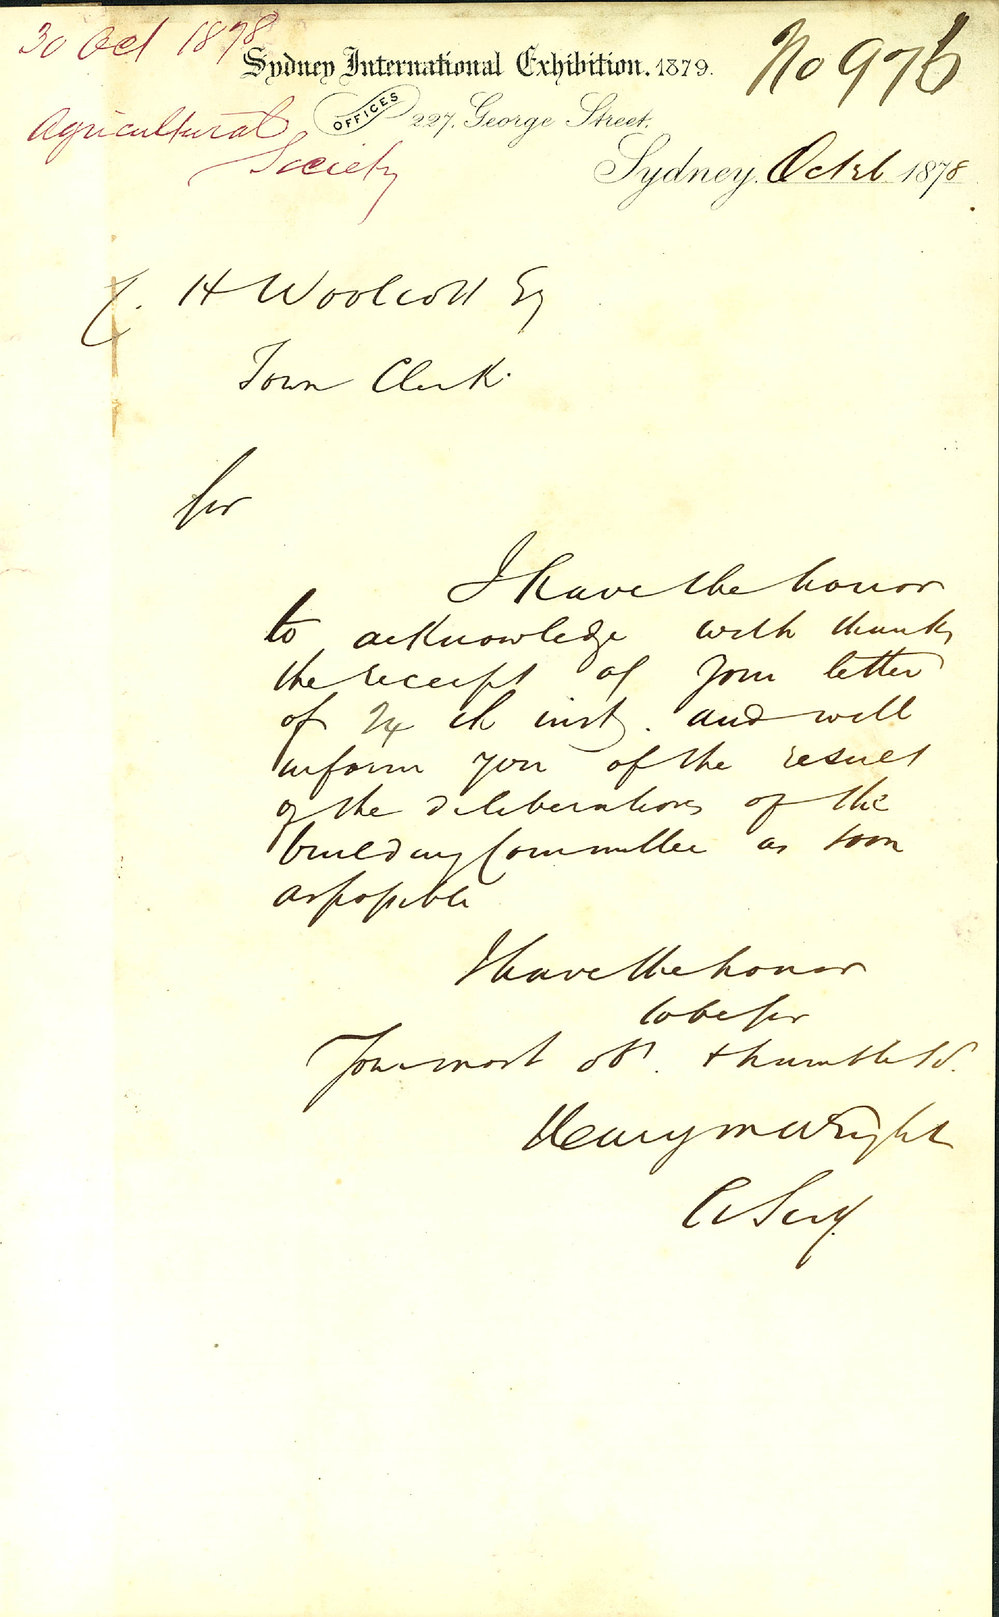 30 Oct 1878
Sydney International Exhibition. 1879.
No 976
Agricultural
Society
OFFICES
227, George Street,
Sydney, 1878
C. H Woolcott Esq
Town Clerk.
Sir
I have the honor
to acknowledge with thanks
the receipt of your letter
of 24 th inst. and will
inform you of the result
of the deliberations of the
building Committee as soon
as possible
I have the honor
to be Sir
Your most obt. & humble Sr.
Henry M Wright